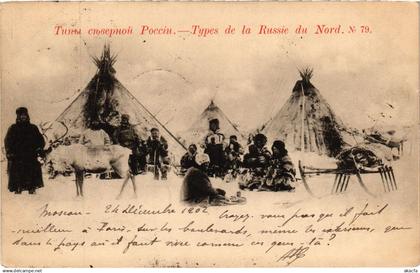 Типы сѣверной Россіи.—Types de la Russie du Nord. № 79.
Moscou - 24 Décembre 1902 Croyez-vous pas que il fait
meilleur à Paris, sur les boulevards, même les extérieurs, que
dans le pays où il faut vivre comme ces gens là?